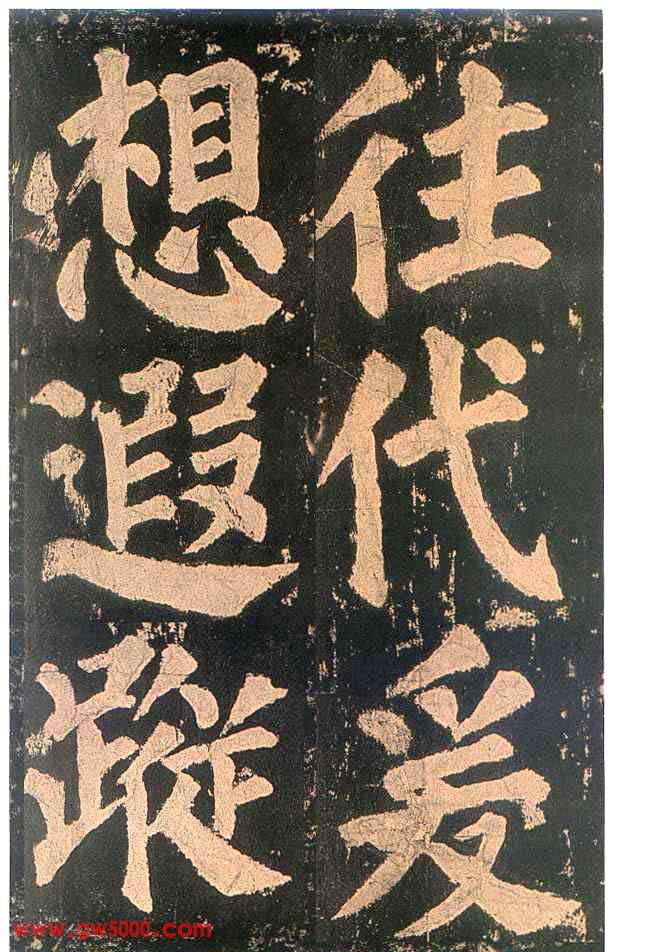 往代爰
想遐蹤
www.gw5000.com